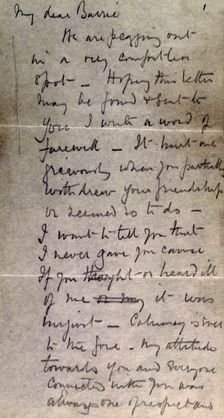 My dear Barrie
We are pegging out
in a very comfortless
spot - Hoping this letter
may be found & sent to
you I write a word of
farewell - It hurt me
grievously when you partially
withdrew your friendship
or seemed so to do -
I want to tell you that
I never gave you cause
If you thought or heard ill
of me or my it was
unjust - Calumny is ever
to the fore. My attitude
towards you and everyone
connected with you was
always one of respect and